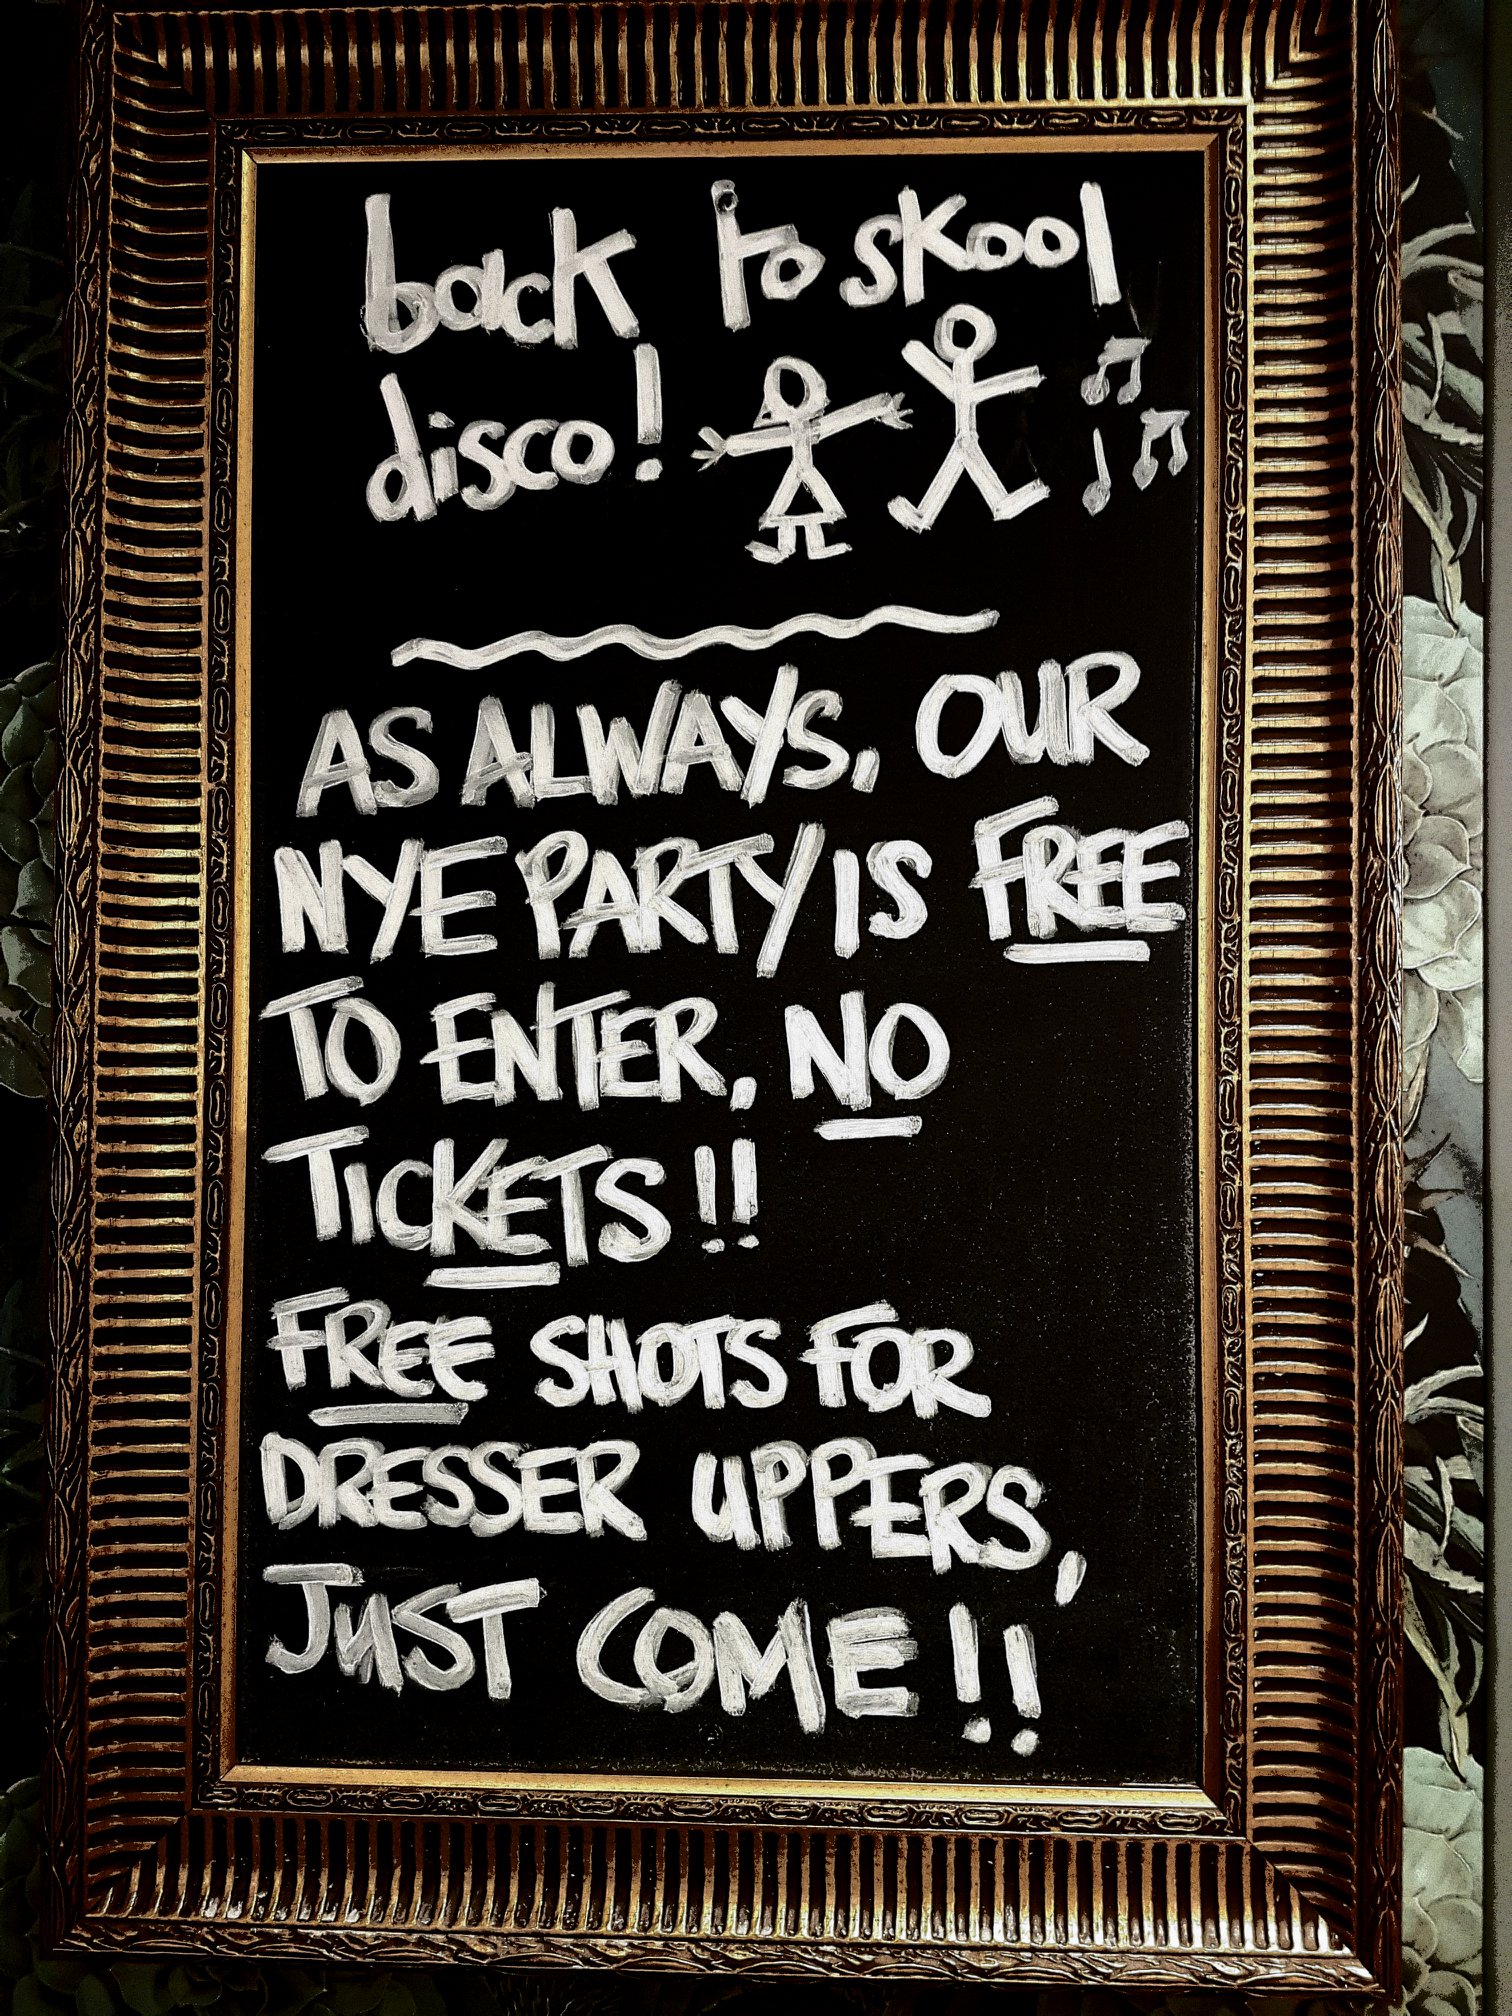 back to skool
disco!
AS ALWAYS, OUR
NYE PARTY IS FREE
TO ENTER, NO
TICKETS!!
FREE SHOTS FOR
DRESSER UPPERS,
JUST COME!!